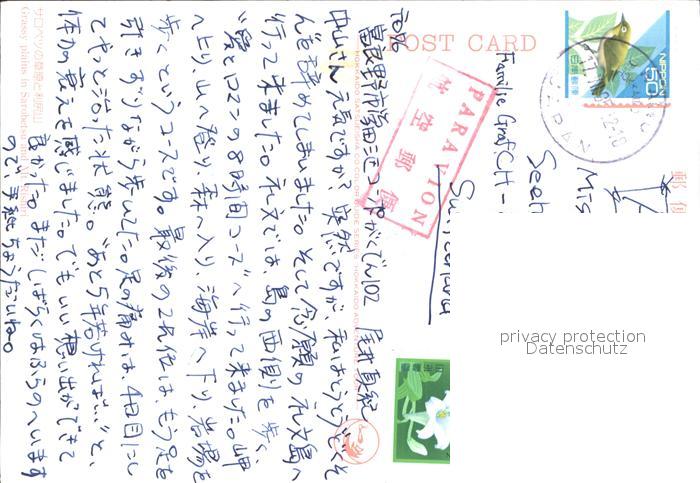 POST CARD
〒076
富良野市
中山さん 元気ですか? 突然ですが、私はとうとう
を辞めてしまいました。そして念願の礼文島へ
行って来ました。礼文では、島の西側を歩く、
"愛とロマンの8時間コース"へ行って来ました。岬
へ上り、山へ登り、森へ入り、海岸へ下り、岩場を
歩くというコースです。最後の2時間位は、もう足を
引きずりながら歩いてた。足の痛みは、4日目にし
てやっと治った状態。"あと5年若ければ…"と、
体力の衰えを感じました。でもいい想い出ができて
良かった。まだしばらくはふらのへいます
ので、手紙ちょうだいね。
サロベツの原野と利尻山
Grassy plains in Sarobetsu and Mt. Rishiri
PAR AVION
航空郵便
NIPPON
50
日本郵便
JAPAN
Familie Graf CH-
Seeh
Switzerland
privacy protection
Datenschutz